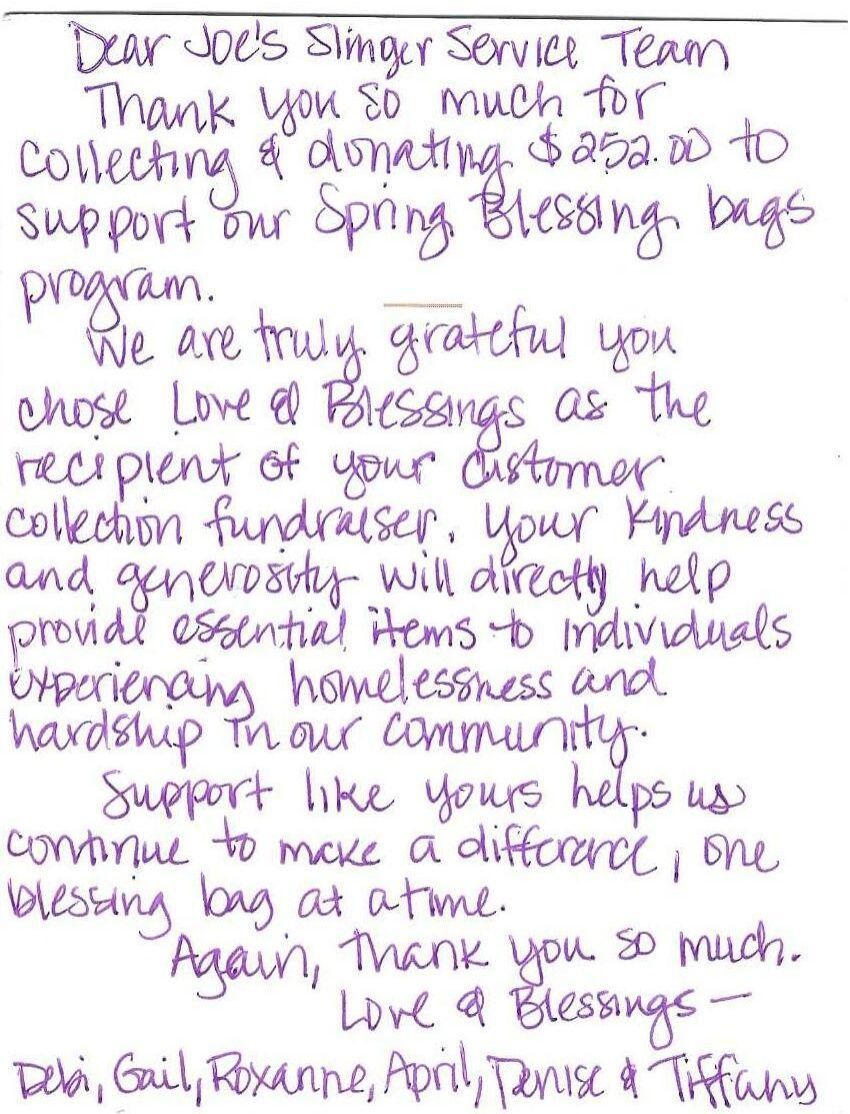 Dear Joe's Slinger Service Team
Thank you so much for
collecting & donating $252.00 to
support our Spring Blessing bags
program.
We are truly grateful you
chose Love & Blessings as the
recipient of your customer
collection fundraiser. Your kindness
and generosity will directly help
provide essential items to individuals
experiencing homelessness and
hardship in our community.
Support like yours helps us
continue to make a difference, one
blessing bag at a time.
Again, thank you so much.
Love & Blessings —
Debi, Gail, Roxanne, April, Denise & Tiffany